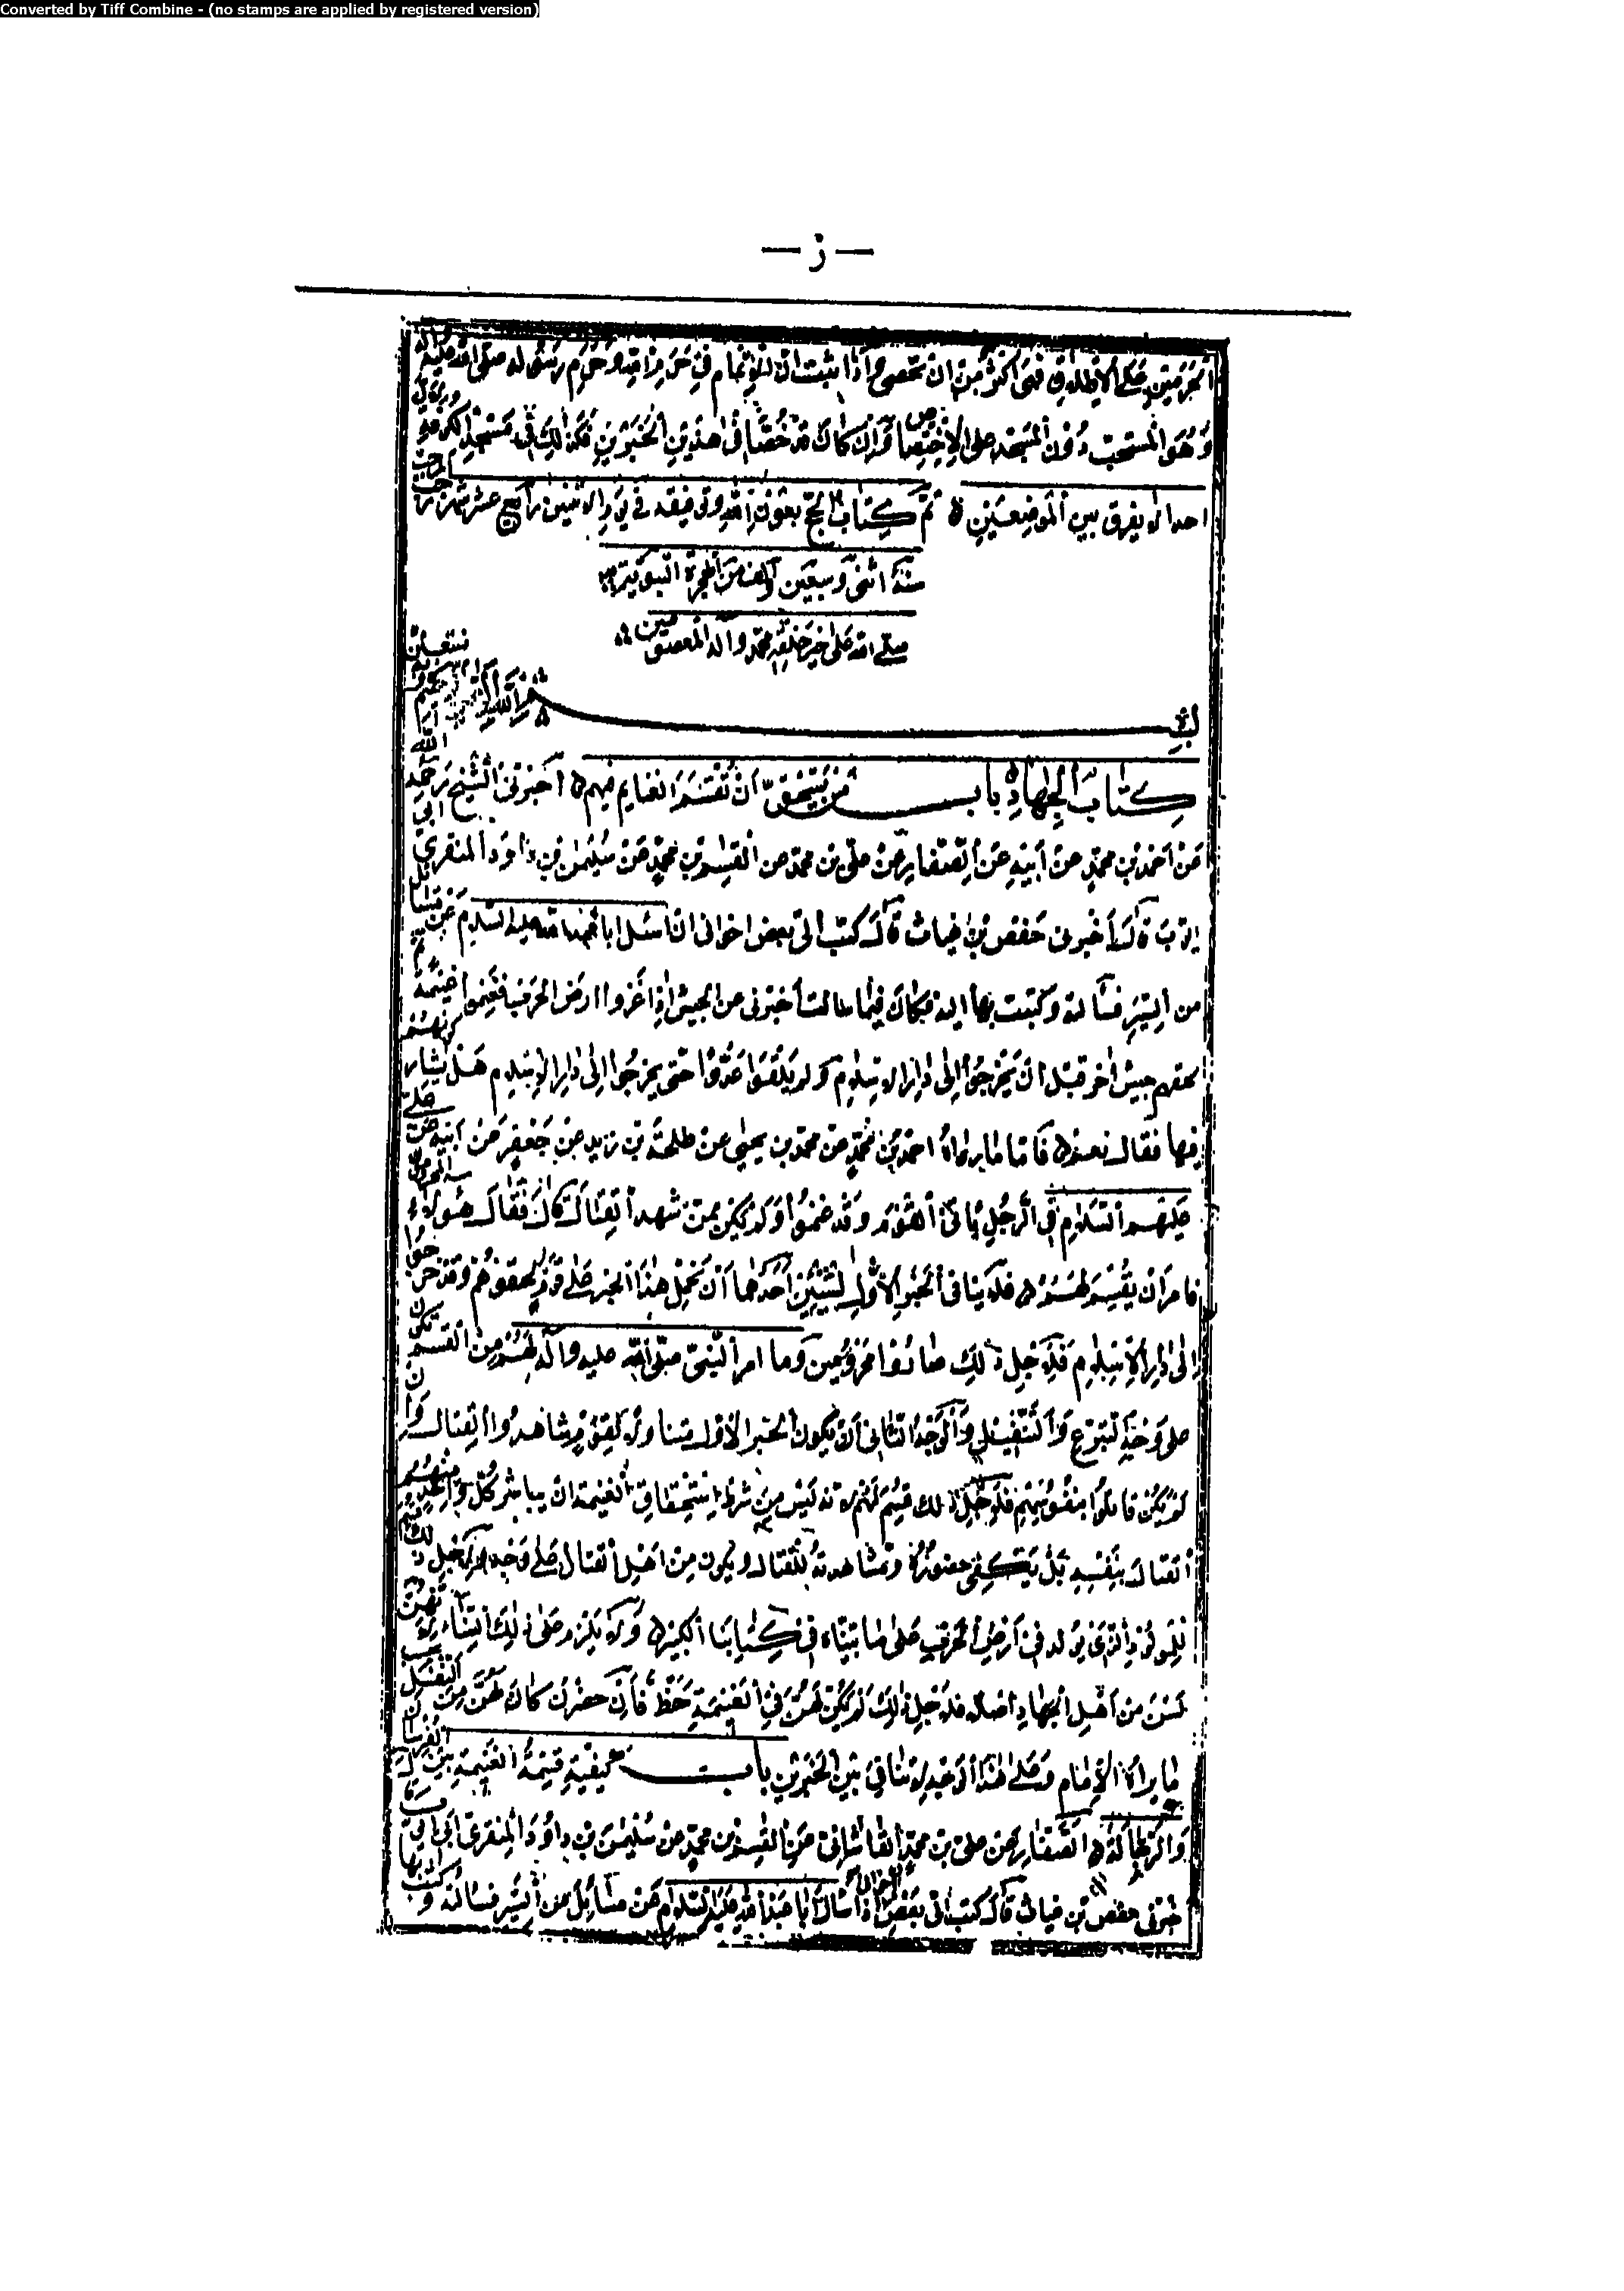 Converted by Tiff Combine - (no stamps are applied by registered version)
— ز —
الحرمين على الاطلاق فهى اكثر من ان تحصى واذا ثبت ان الاتمام في حرم الله وحرم رسوله صلى الله عليه واله
وهو المستحب دون المسجد على الاختصاص وان كان قد خصا في هذين الخبرين فكذلك في مسجد الكوفة
احدا لا يفرق بين الموضعين تم كتاب الحج بعون الله وتوفيقه في يوم الاثنين رابع عشر شهر رجب المرجب
سنة اثنى وسبعين والف من الهجرة النبوية
صلى الله على خير خلقه محمد واله المعصومين
بسم الله الرحمن الرحيم
كتاب الجهاد باب من يستحق ان تقسم الغنايم فيهم اخبرنى الشيخ رحمه الله
عن احمد بن محمد عن ابيه عن الصفار عن على بن محمد عن القسم بن محمد عن سليمن بن داود المنقرى ابى
ايوب قال اخبرنى حفص بن غياث قال كتب الى بعض اخوانى ان اسئل ابا عبد الله عليه السلام عن مسائل
من السير فسألته وكتبت بها اليه فكان فيما سالت اخبرنى عن الجيش اذا غزوا ارض الحرب فغنموا غنيمة ثم
لحقهم جيش اخر قبل ان يخرجوا الى دار الاسلام ولم يلقوا عدوا حتى يخرجوا الى دار الاسلام هل يشاركونهم
فيها فقال نعم فاما ما رواه احمد بن محمد عن محمد بن يحيى عن طلحة بن زيد عن جعفر عن ابيه عن على
عليهم السلام في الرجل ياتى القوم وقد غنموا ولم يكن ممن شهد القتال قال فقال هؤلاء المحرومون
فامر ان يقسم لهم فلا ينافى الخبر الاول لشيئين احدهما ان نحمل هذا الخبر على قوم لحقوهم وقد خرجوا
الى دار الاسلام فلاجل ذلك صاروا محرومين وما امر النبى صلى الله عليه واله لهم من القسم يكون
على وجه التبرع والتنفيل والوجه الثانى ان يكون الخبر الاول متناولا لقوم شاهدوا القتال وان
لم يكونوا قاتلوا بنفوسهم فلاجل ذلك قسم لهم لانه ليس من شرط استحقاق الغنيمة ان يباشر كل واحد منهم
القتال بنفسه بل يكفى حضوره ومشاهدته للقتال ويكون من اهل القتال على وجه ولاجل ذلك قسم
للمولود الذى يولد في ارض الحرب على ما بيناه في كتابنا الكبير ولا يلزم على ذلك النساء لانهن
لسن من اهل الجهاد اصلا فلاجل ذلك لم يكن لهن في الغنيمة حظ فان حضرن كان لهن من النفل بحسب
ما يراه الامام وعلى هذا الوجه لا تنافى بين الخبرين باب كيفية قسمة الغنيمة بين الفرسان
والرجالة الصفار عن على بن محمد القاشانى عن القسم بن محمد عن سليمن بن داود المنقرى ابى ايوب قال
اخبرنى حفص بن غياث قال كتب الى بعض اخوانى ان اسأل ابا عبد الله عليه السلام عن مسائل من السير فسالته وكتبت بها